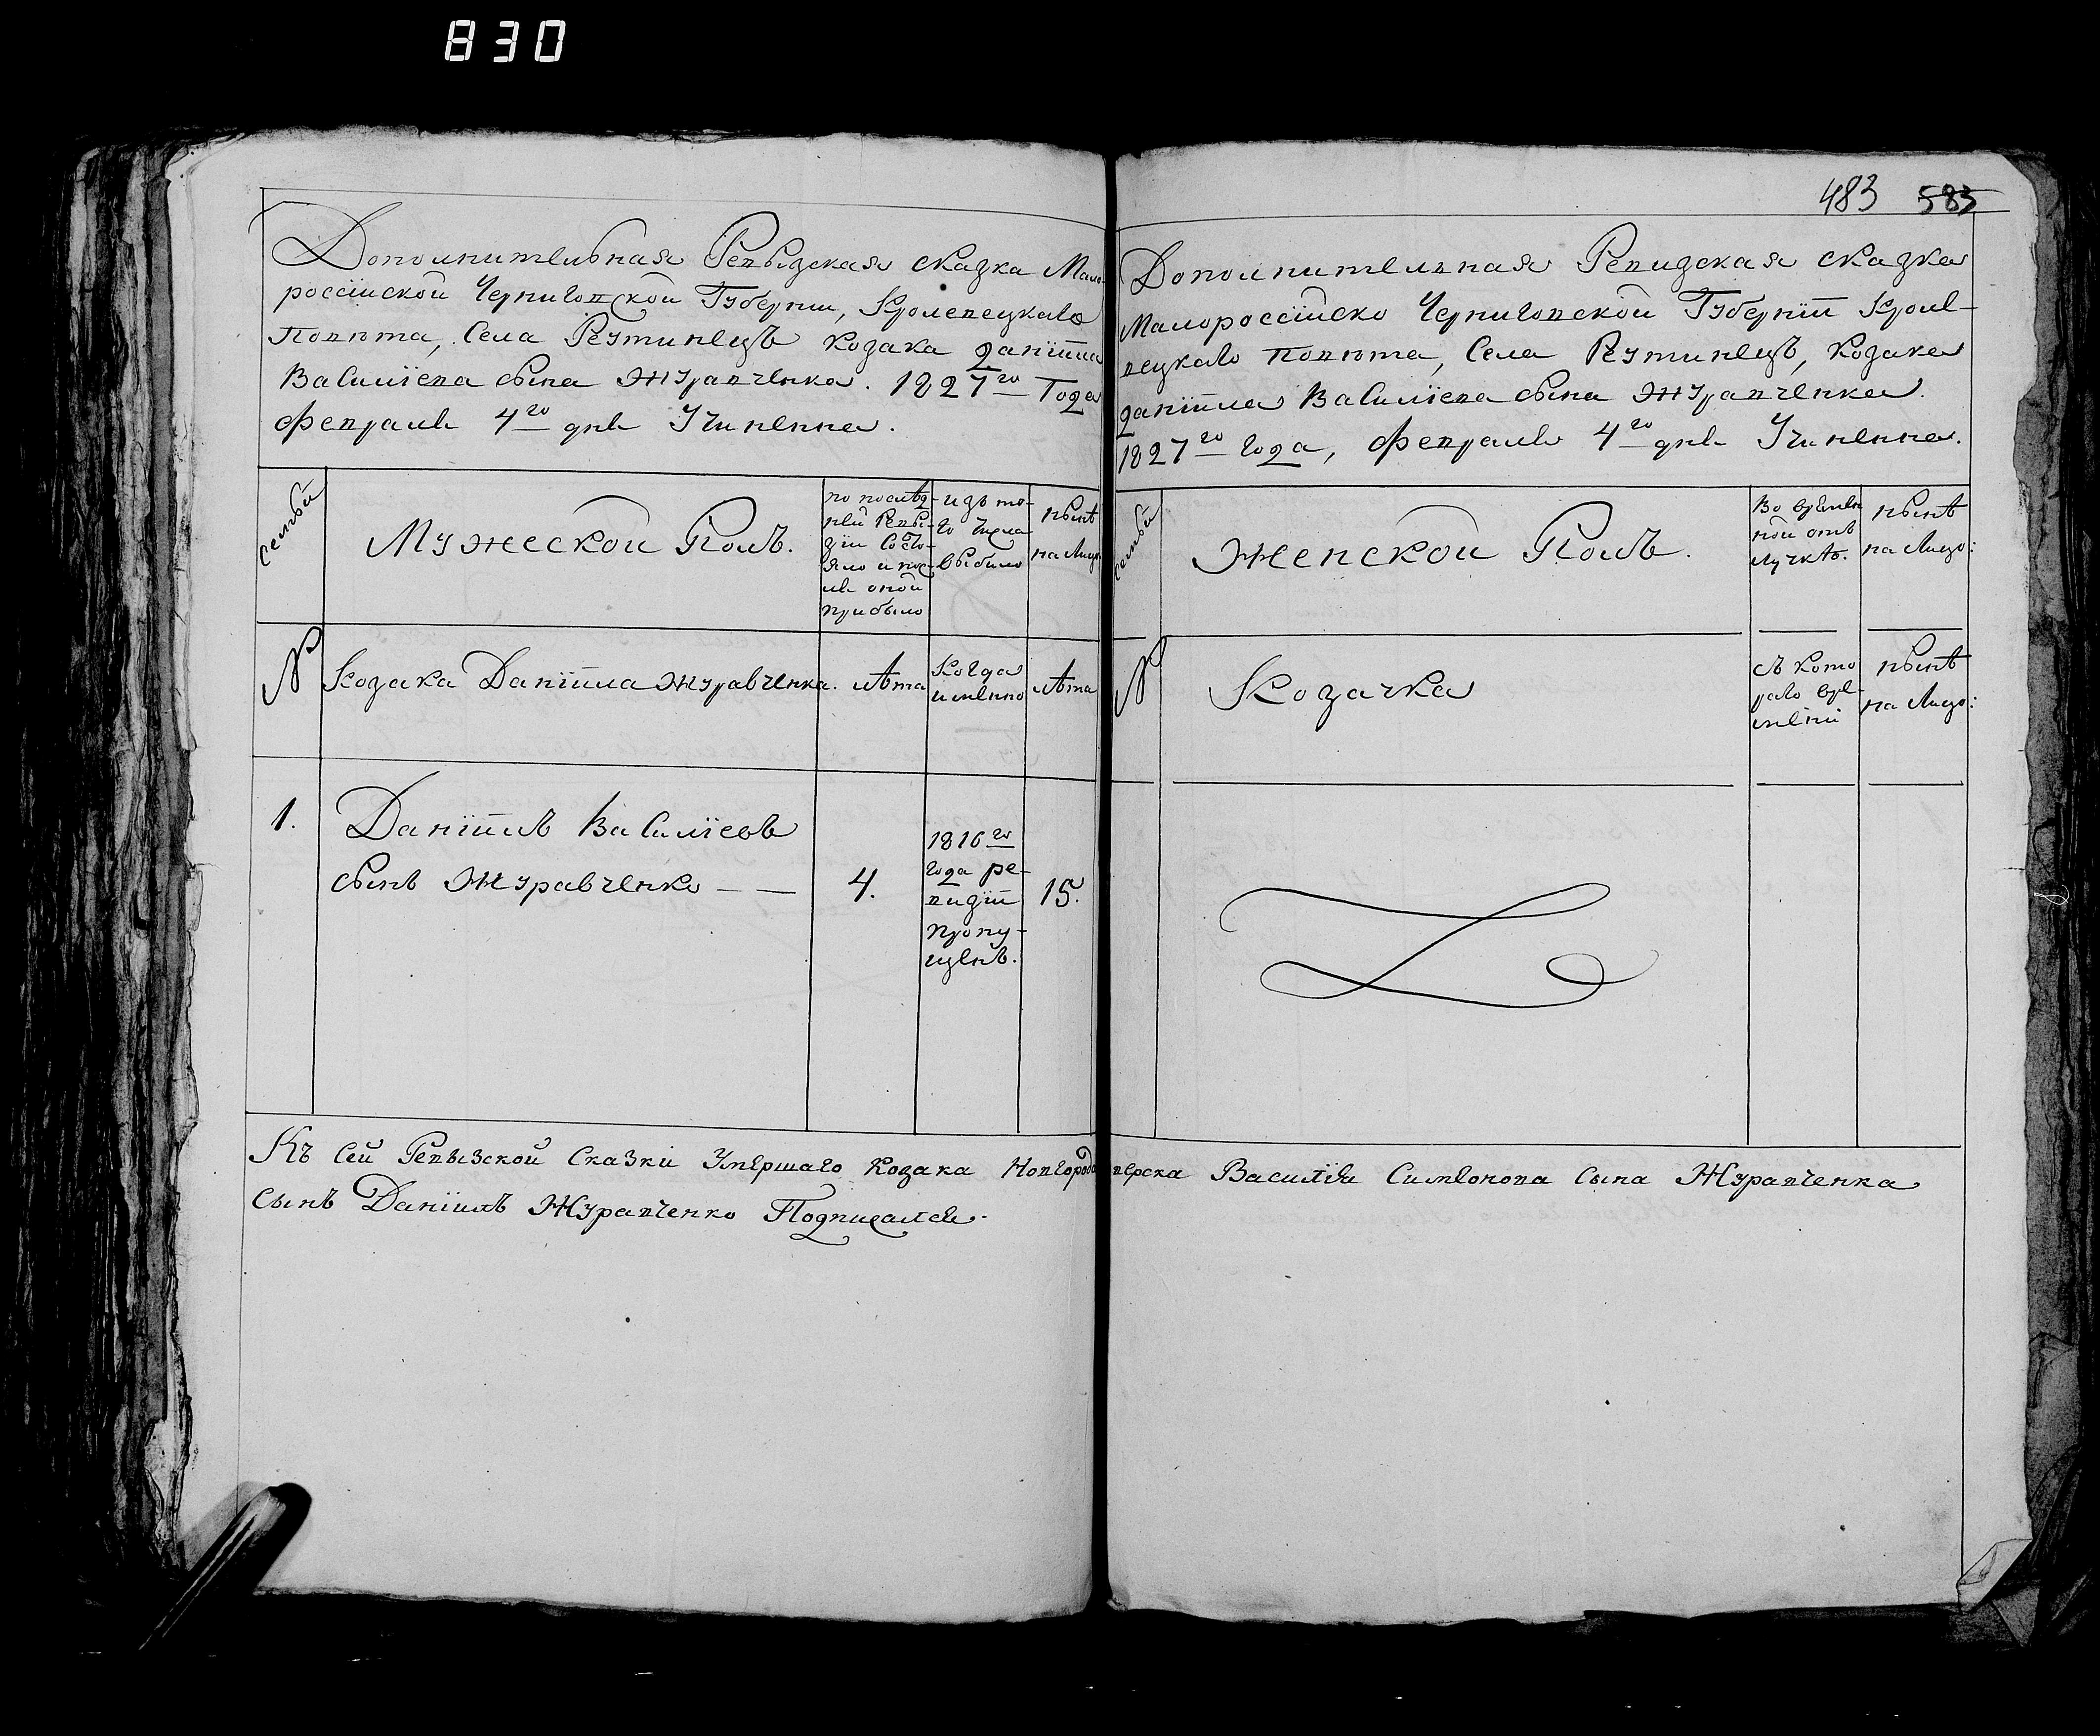 830
483 583
Дополнительная Ревызская сказка Мало-
россійской Черниговской Губерніи, Кролевецкаго
Повѣта, Села Реутинецъ козака Даніила
Василіева сына Журавченка. 1827го Года
февраля 4го дня Учиненна.
семьи
Мужеской Полъ.
по послѣд-
ней Ревы-
зіи Состо-
яло и пос-
ле оной
прибыло
изъ то-
го числа
выбыло
нынѣ
на Лицо
№
Козака Даніила Журавченка.
лѣта
Когда
именно
лѣта
1.
Даніилъ Василіевъ
сынъ Журавченко — —
4.
1816го
года ре-
визіи
пропу-
щенъ.
15.
Дополнителная Ревизская сказка
Малороссійско Черниговской Губерніи Кроле-
вецкаго повѣта, Села Реутинецъ, Козака
Даніила Василіева сына Журавченка.
1827го года, февраля 4го дня Учиненна.
семьи
Женской Полъ.
Во времен
ной отъ
лучкѣ.
нынѣ
на Лицо:
№
Козачка
съ кото
раго вре-
мени
нынѣ
на Лицо:
Къ сей Ревызской Сказки Умершаго Козака Новгородсѣверска Василія Симеонова Сына Журавченка
Сынъ Даніилъ Журавченко Подписался.